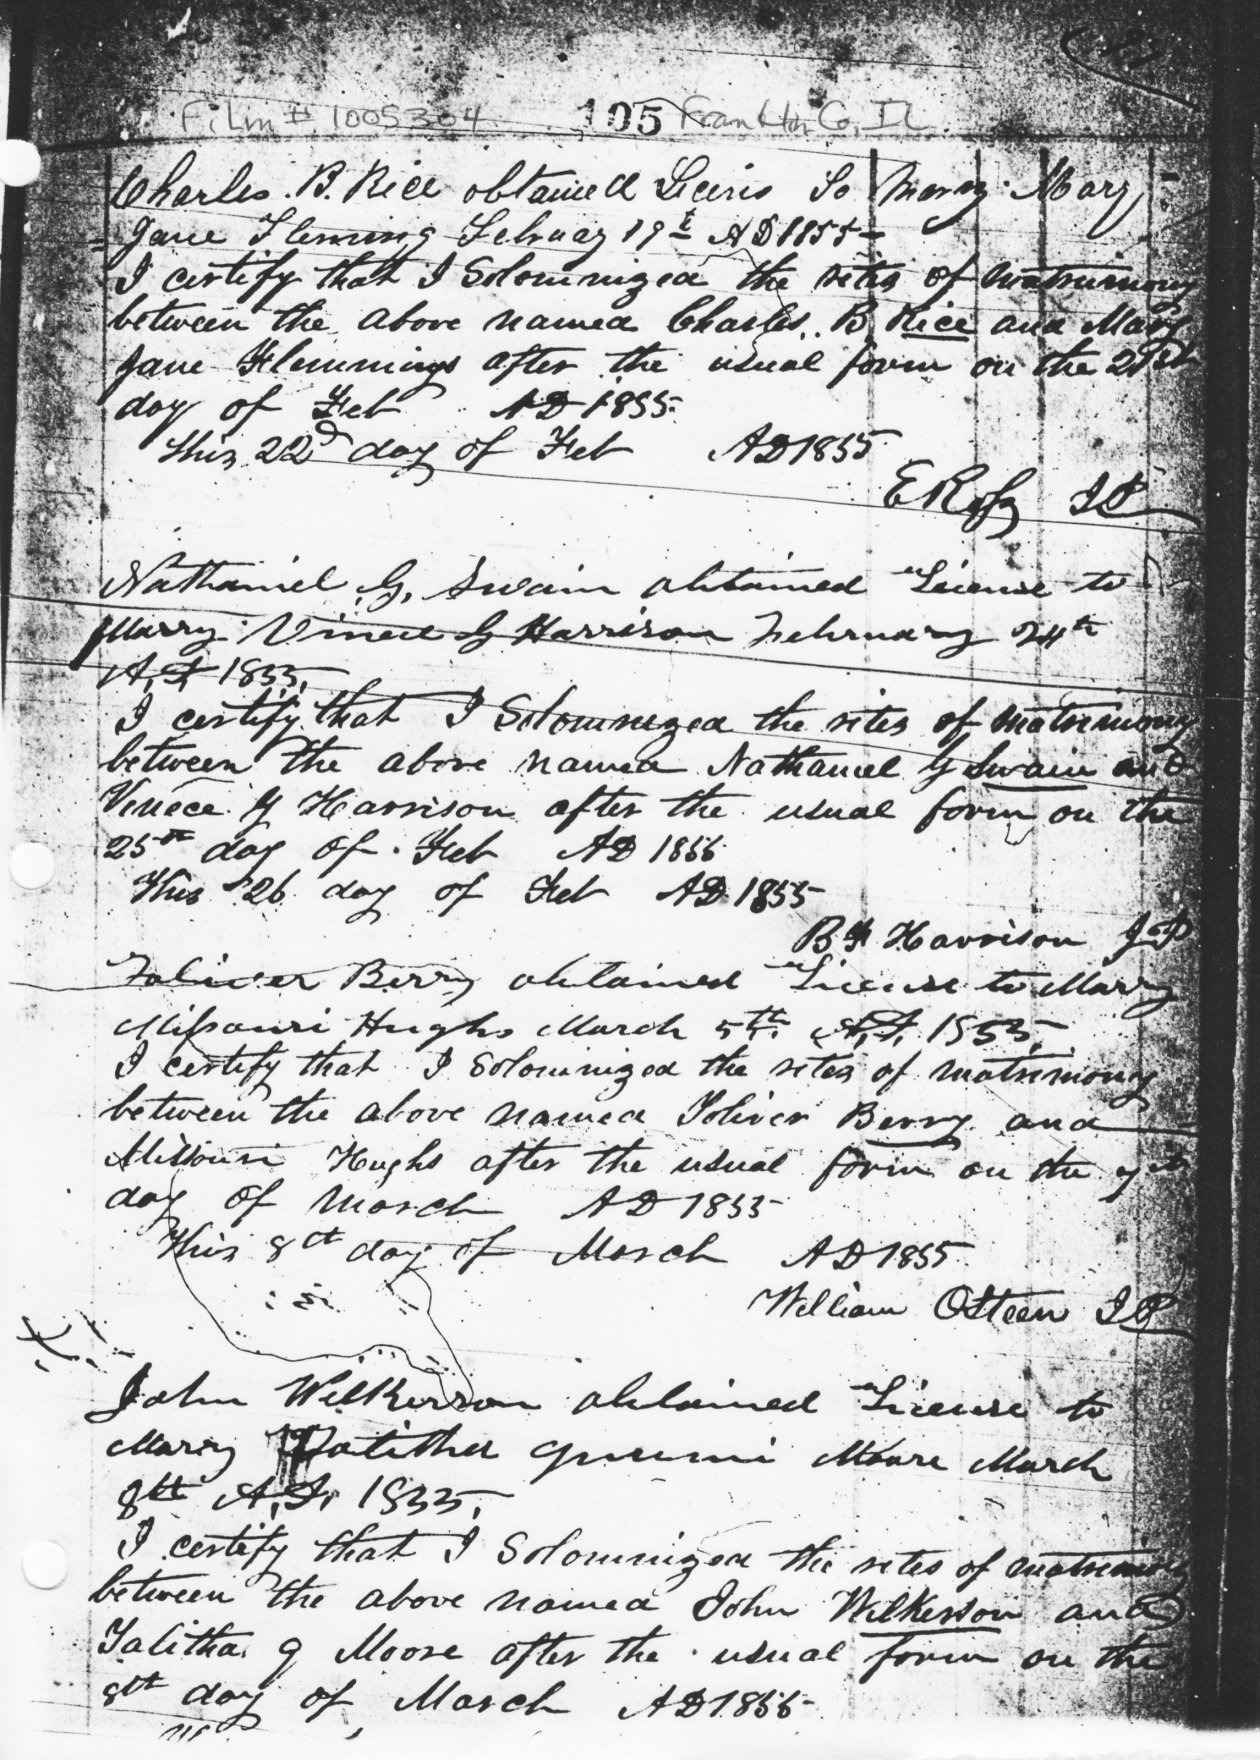 Film # 1005304 105 Franklin Co, IL
Charles B. Rice obtained to Marry Mary
Jane Fleming February 19th AD 1855
I certify that I Solomnized the rites of matrimony
between the above named Charles B Rice and Mary
Jane Flemmings after the usual form on the 21st
day of Feb AD 1855
this 22d day of Feb AD 1855
E
Nathaniel G. Swain obtained License to
Marry G Harrison February 24th
A.D 1855.
I certify that I Solomnized the rites of matrimony
between the above named Nathaniel G Swain and
G Harrison after the usual form on the
25th day of Feb AD 1855
This 26 day of Feb AD 1855
B F Harrison JP
Toliver Berry obtained License to Marry
Missouri Hughs March 5th A.D. 1855.
I certify that I Solomnized the rites of matrimony
between the above named Toliver Berry and
Missouri Hughs after the usual form on the 7th
day of March AD 1855
This 8th day of March AD 1855
William Osteen JP
John Wilkerson obtained License to
Marry Moore March
8th A.D. 1855.
I certify that I Solomnized the rites of matrimony
between the above named John Wilkerson and
Talitha J Moore after the usual form on the
8th day of March AD 1855